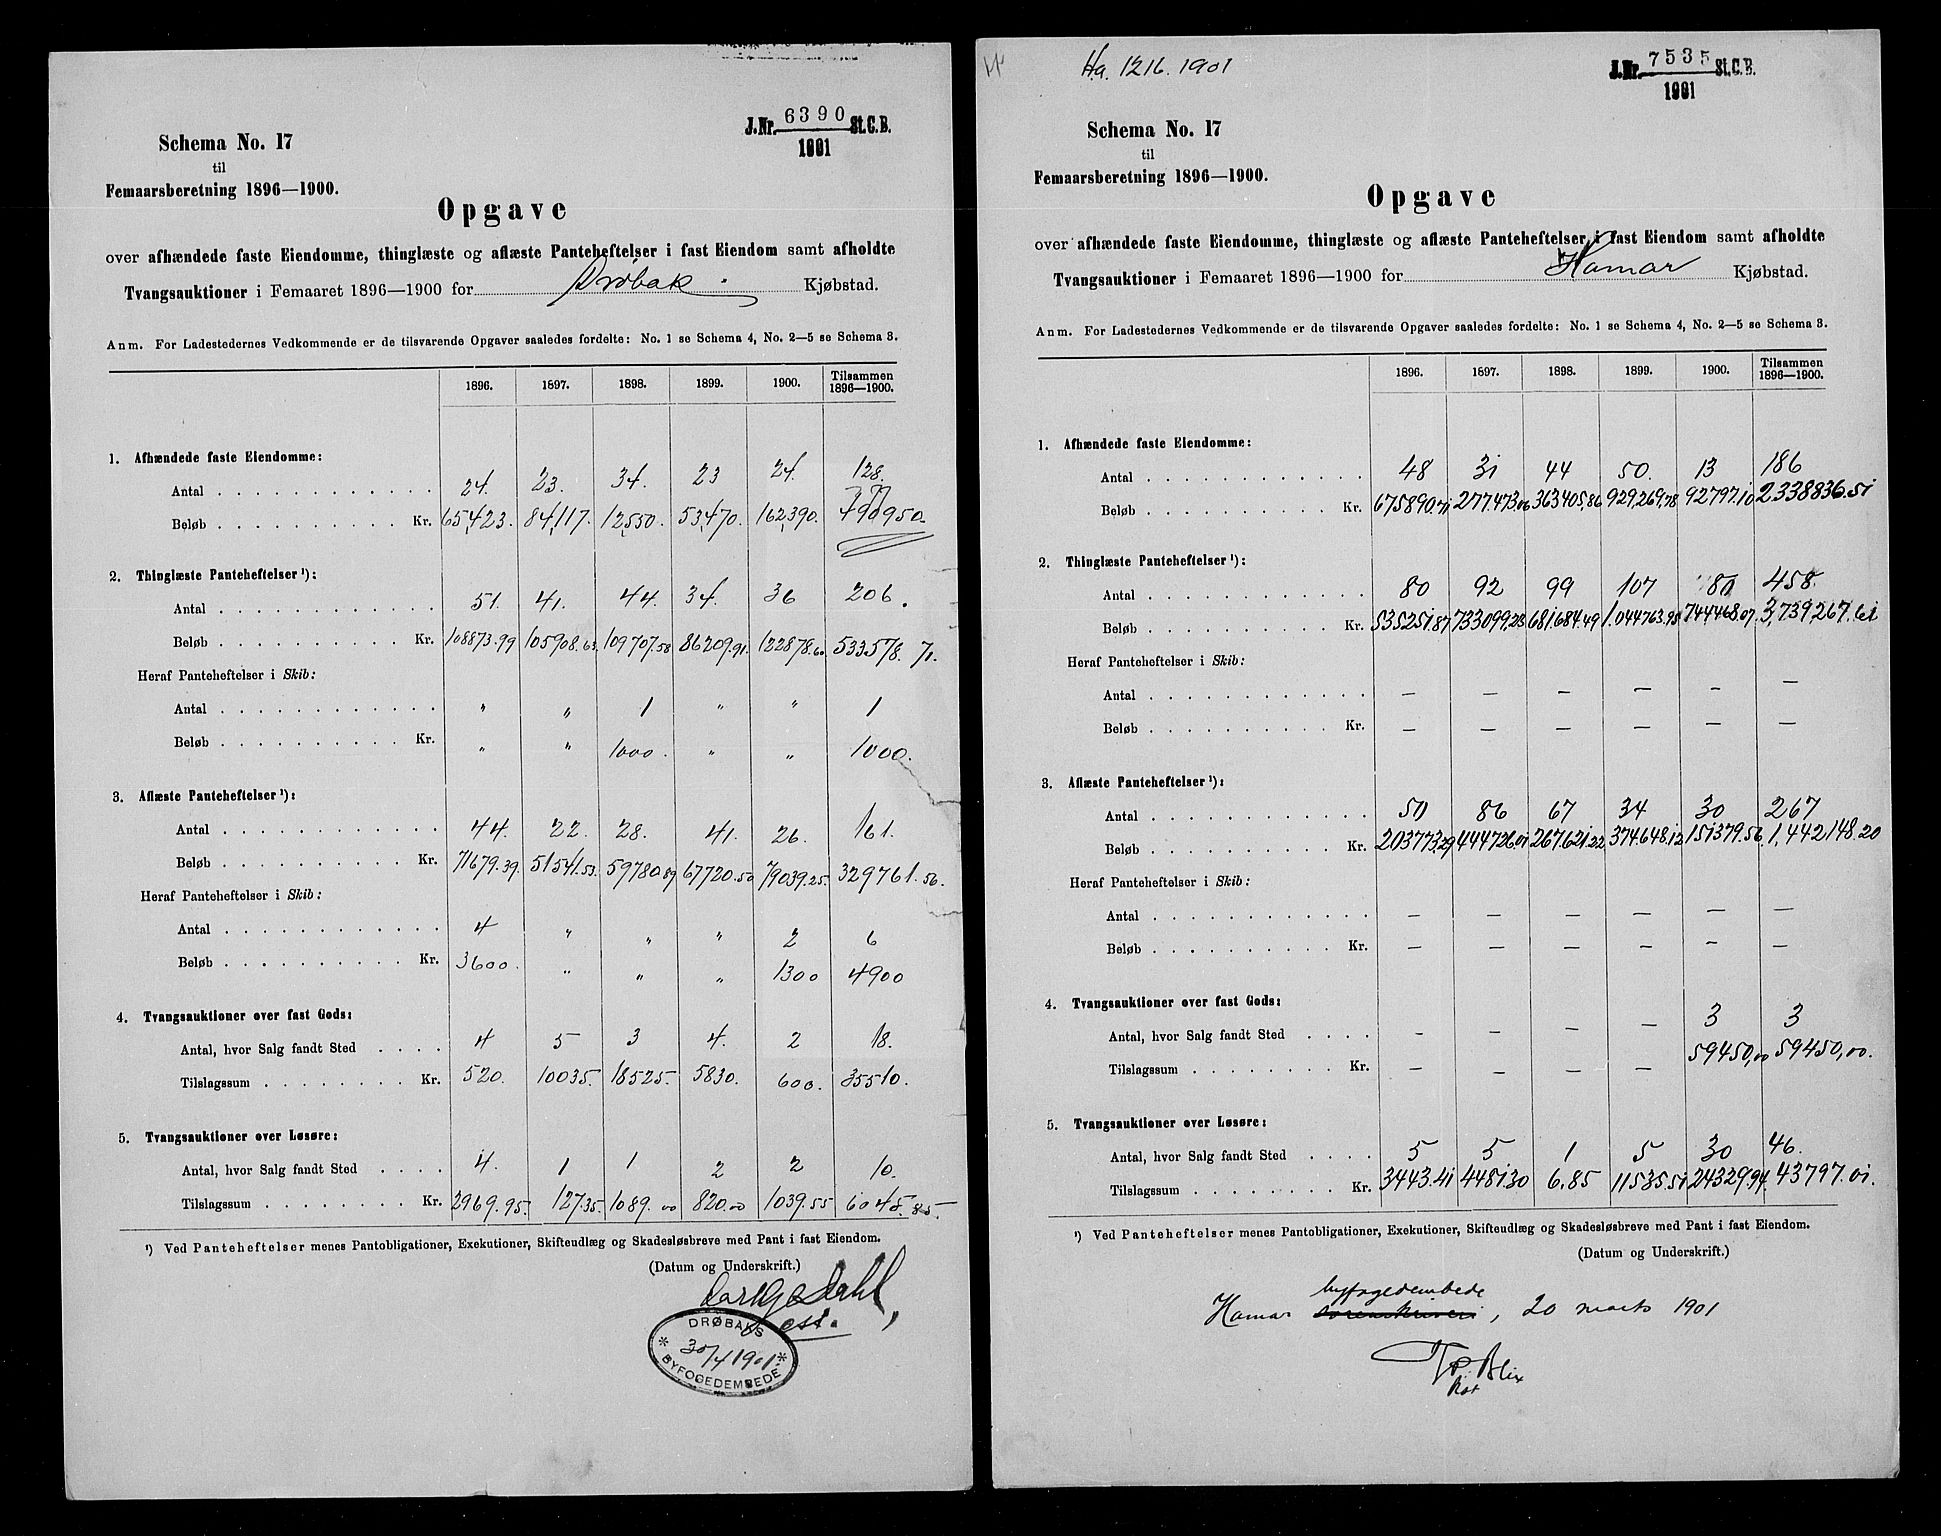 J.Nr. 6390 St.C.B.
1901
Schema No. 17
til
Femaarsberetning 1896—1900.
Opgave
over afhændede faste Eiendomme, thinglæste og aflæste Panteheftelser i fast Eiendom samt afholdte
Tvangsauktioner i Femaaret 1896—1900 for Drøbak Kjøbstad.
Anm. For Ladestedernes Vedkommende er de tilsvarende Opgaver saaledes fordelte: No. 1 se Schema 4, No. 2—5 se Schema 3.
1896. 1897. 1898. 1899. 1900. Tilsammen 1896—1900.
1. Afhændede faste Eiendomme:
Antal 24. 23. 34. 23 24. 128.
Beløb Kr. 65,423. 84,117. 12,550. 53,470. 162,390.
2. Thinglæste Panteheftelser ¹):
Antal 51. 41. 44. 34. 36 206.
Beløb Kr. 108873.99 105908.63. 109707.58 86209.91. 122878.60 533578.71.
Heraf Panteheftelser i Skib:
Antal " " 1 " " 1
Beløb Kr. " " 1000. " " 1000.
3. Aflæste Panteheftelser ¹):
Antal 44. 22. 28. 41. 26. 161.
Beløb Kr. 71679.39. 51541.53. 59780.89 67720.50 79039.25. 329761.56.
Heraf Panteheftelser i Skib:
Antal 4 " " " 2 6
Beløb Kr. 3600. " " " 1300 4900
4. Tvangsauktioner over fast Gods:
Antal, hvor Salg fandt Sted 4 5 3 4. 2 18.
Tilslagssum Kr. 520. 10035. 18525. 5830. 600. 35510.
5. Tvangsauktioner over Løsøre:
Antal, hvor Salg fandt Sted 4. 1 1 2 2 10.
Tilslagssum Kr. 2969.95. 127.35. 1089.00 820.00 1039.55 6045.85.
¹) Ved Panteheftelser menes Pantobligationer, Exekutioner, Skifteudlæg og Skadesløsbreve med Pant i fast Eiendom.
(Datum og Underskrift.)
Dahl,
cst.
DRØBAKS
30/4 1901.
BYFOGEDEMBEDE
Ha. 1216. 1901
J.Nr. 7535 St.C.B.
1901
Schema No. 17
til
Femaarsberetning 1896—1900.
Opgave
over afhændede faste Eiendomme, thinglæste og aflæste Panteheftelser i fast Eiendom samt afholdte
Tvangsauktioner i Femaaret 1896—1900 for Hamar Kjøbstad.
Anm. For Ladestedernes Vedkommende er de tilsvarende Opgaver saaledes fordelte: No. 1 se Schema 4, No. 2—5 se Schema 3.
1896. 1897. 1898. 1899. 1900. Tilsammen 1896—1900.
1. Afhændede faste Eiendomme:
Antal 48 31 44 50. 13 186
Beløb Kr. 675890.71 277.473.06 363405,86 929,269,78 92797.10 2338836.51
2. Thinglæste Panteheftelser ¹):
Antal 80 92 99 107 80 458.
Beløb Kr. 535251.87 733099.23 681.684.49 1.044763.95 744468.07. 3,739,267.61
Heraf Panteheftelser i Skib:
Antal — — — — — —
Beløb Kr. — — — — — —
3. Aflæste Panteheftelser ¹):
Antal 50 86 67 34 30 267
Beløb Kr. 203773.29 444726.01 267.621.22 374.648.12 151379.56 1,442,148.20
Heraf Panteheftelser i Skib:
Antal — — — — — —
Beløb Kr. — — — — — —
4. Tvangsauktioner over fast Gods:
Antal, hvor Salg fandt Sted — — — — 3 3
Tilslagssum Kr. — — — — 59450,00 59450,00.
5. Tvangsauktioner over Løsøre:
Antal, hvor Salg fandt Sted 5 5 1 5 30 46.
Tilslagssum Kr. 3443.41 4481.30 6.85 11535.51 24329.94. 43797.01.
¹) Ved Panteheftelser menes Pantobligationer, Exekutioner, Skifteudlæg og Skadesløsbreve med Pant i fast Eiendom.
(Datum og Underskrift.)
byfogedembede
Hamar sorenskriveri, 20 marts 1901
Blix